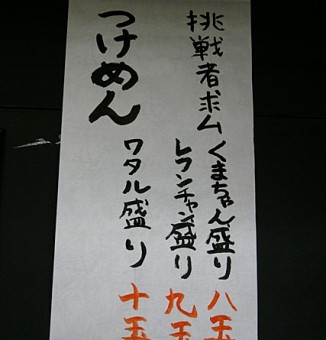 挑戦者求ム
くまちゃん盛り 八玉
レフンチャン盛り 九玉
つけめん
ワタル盛り 十玉